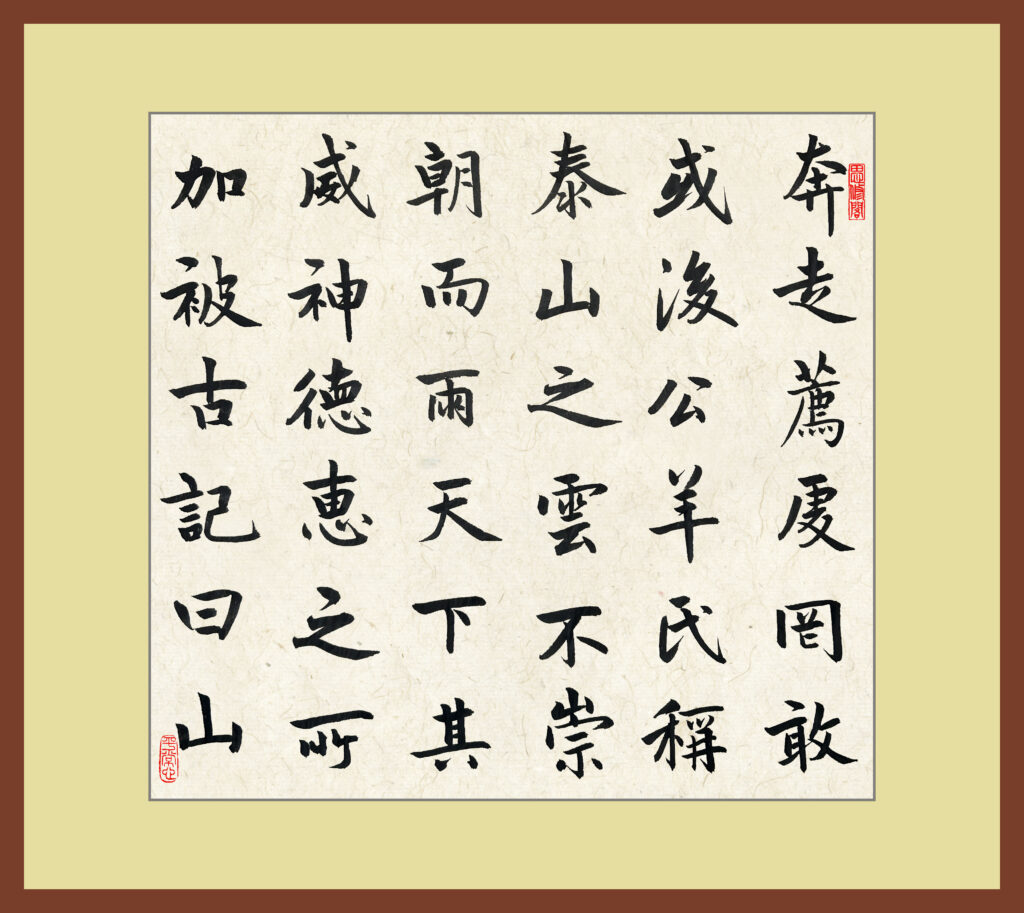 思修閣
奔走薦虔罔敢
或後公羊氏稱
泰山之雲不崇
朝而雨天下其
威神德惠之所
加被古記曰山
平常心